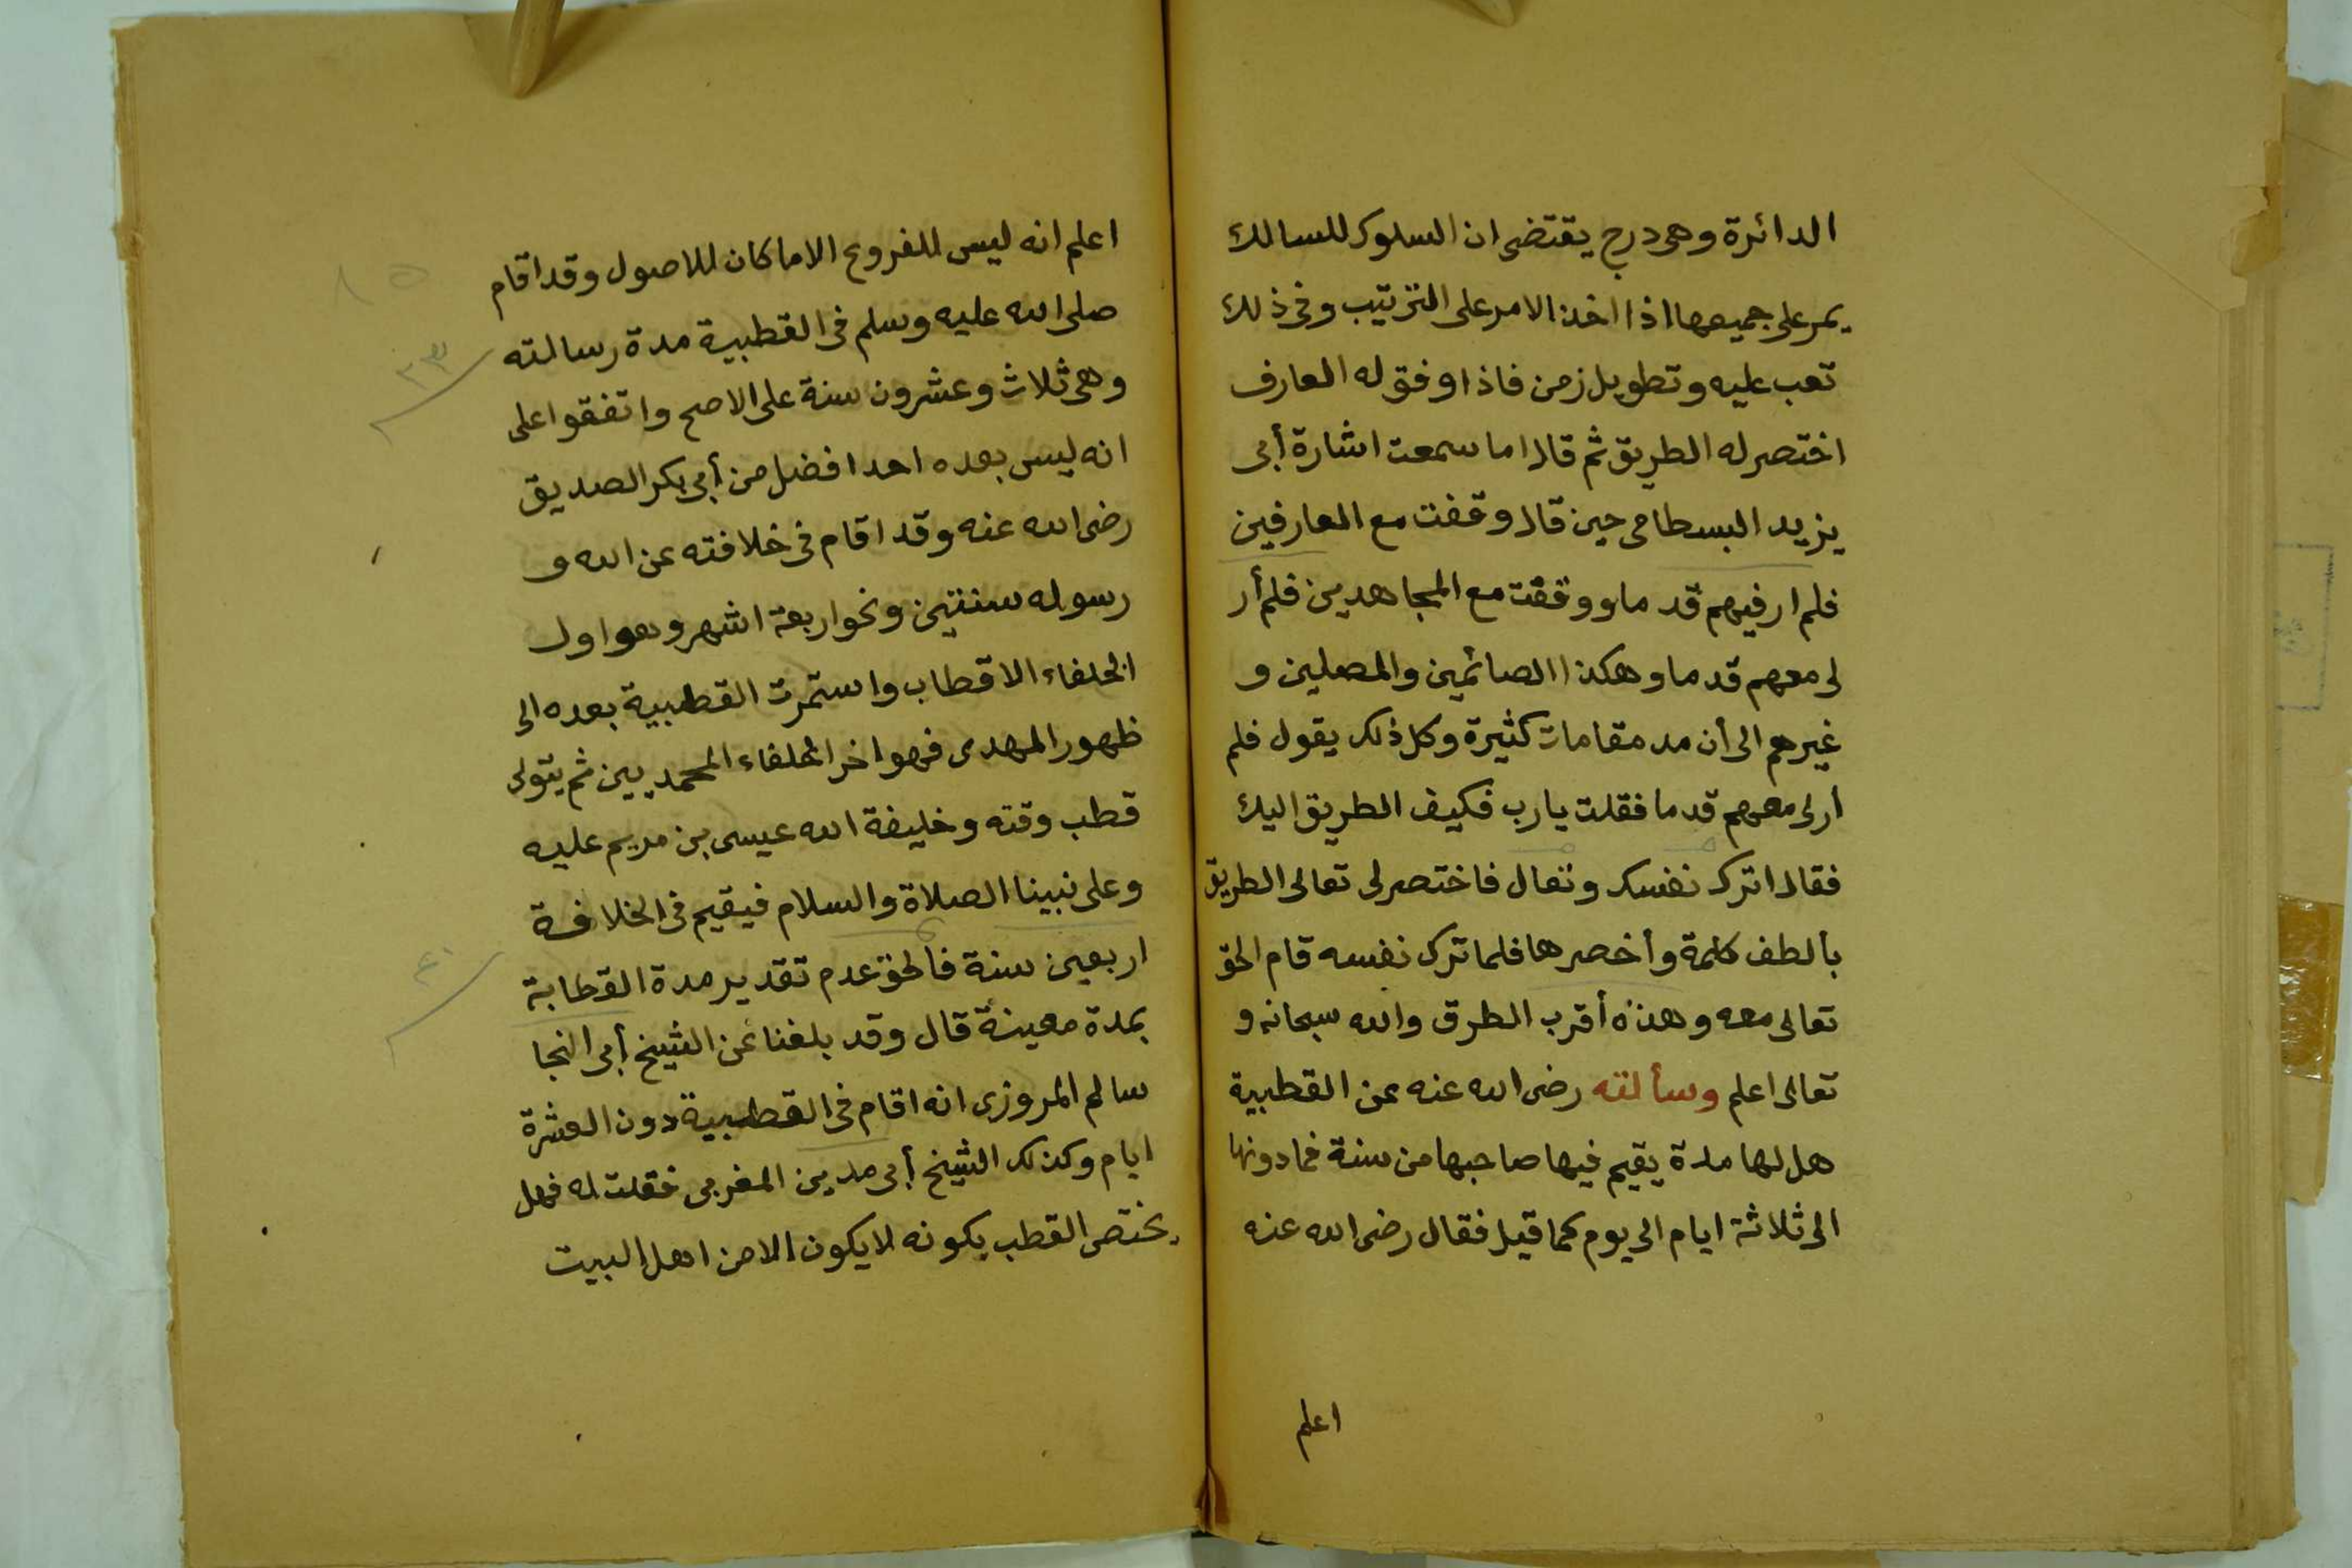 الدائرة وهى درج يقتضى ان السلوك للسالك
يمر على جميعها اذا اخذ الامر على الترتيب وفى ذلك
تعب عليه وتطويل زمن فاذا وفق له العارف
اختصر له الطريق ثم قال اما سمعت اشارة أبى
يزيد البسطامى حين قال وقفت مع العارفين
فلم ار فيهم قدما ووقفت مع المجاهدين فلم أر
لى معهم قدما وهكذا الصائمين والمصلين و
غيرهم الى أن مد مقامات كثيرة وكل ذلك يقول فلم
أر لى معهم قدما فقلت يارب فكيف الطريق اليك
فقال اترك نفسك وتعال فاختصر لى تعالى الطريق
بألطف كلمة وأخصرها فلما ترك نفسه قام الحق
تعالى معه وهذه أقرب الطرق والله سبحانه و
تعالى اعلم وسألته رضى الله عنه عن القطبية
هل لها مدة يقيم فيها صاحبها من سنة فما دونها
الى ثلاثة ايام الى يوم كما قيل فقال رضى الله عنه
اعلم
٨٥
اعلم انه ليس للفروع الا ما كان للاصول وقد اقام
صلى الله عليه وسلم فى القطبية مدة رسالته
وهى ثلاث وعشرون سنة على الاصح واتفقوا على
انه ليس بعده احد افضل من أبى بكر الصديق
رضى الله عنه وقد اقام فى خلافته عن الله و
رسوله سنتين ونحو اربعة اشهر وهو اول
الخلفاء الاقطاب واستمرت القطبية بعده الى
ظهور المهدى فهو اخر الخلفاء المحمديين ثم يتولى
قطب وقته وخليفة الله عيسى بن مريم عليه
وعلى نبينا الصلاة والسلام فيقيم فى الخلافة
اربعين سنة فالحق عدم تقدير مدة القطابة
بمدة معينة قال وقد بلغنا عن الشيخ أبى النجا
سالم المروزى انه اقام فى القطبية دون العشرة
ايام وكذلك الشيخ أبى مدين المغربى فقلت له فهل
يختص القطب بكونه لا يكون الا من اهل البيت
٤٠